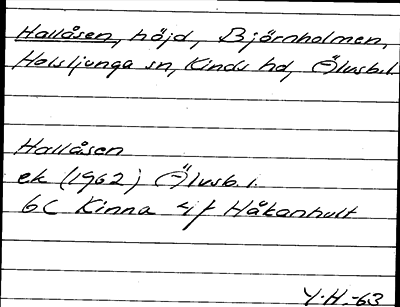 Hallåsen, höjd, Björnholmen,
Holsljunga sn, Kinds hd, Älvsb.l.
Hallåsen
ek (1962) Älvsb. l.
6C Kinna 4j f Håkanhult
Y.H.-63